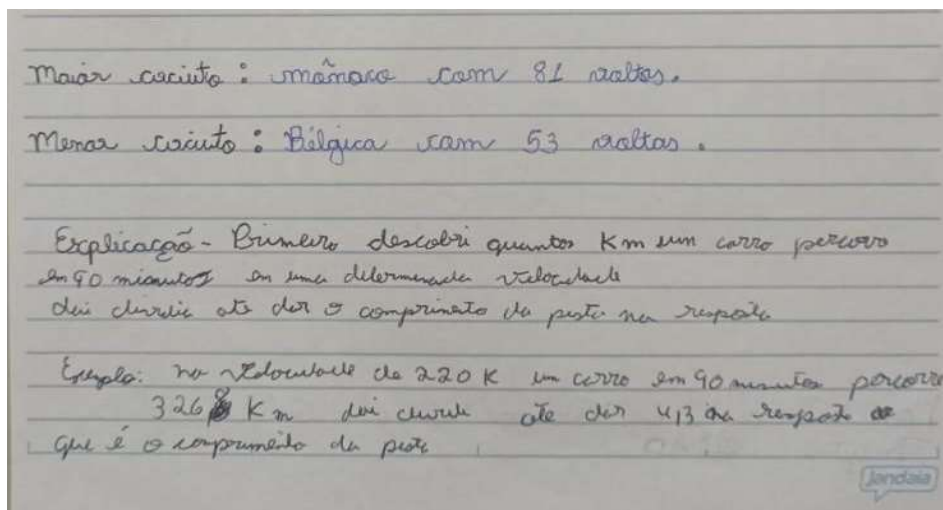 Maior cociuto: mônaco com 81 voltas.
Menor cociuto: Bélgica com 53 voltas.
Explicação - Primeiro descobri quantos Km um carro percorre
em 90 minutos em uma determinada velocidade
dai até dar o comprimento da pista na resposta
Exemplo: na velocidade de 220 K um carro em 90 minutos percorre
326 Km dai até dar 4,3 na resposta
que é o comprimento da pista
Jandaia